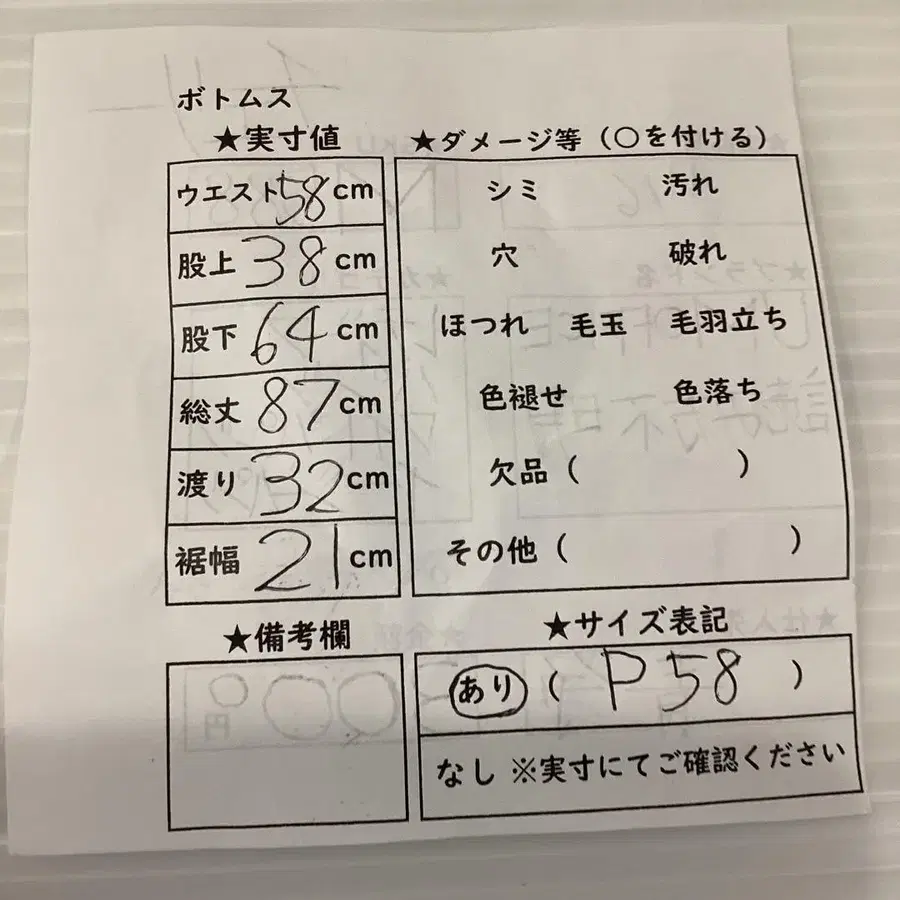 ボトムス
★実寸値
ウエスト58cm
股上38cm
股下64cm
総丈87cm
渡り32cm
裾幅21cm
★ダメージ等(○を付ける)
シミ 汚れ
穴 破れ
ほつれ 毛玉 毛羽立ち
色褪せ 色落ち
欠品( )
その他( )
★備考欄
★サイズ表記
あり(P58)
なし ※実寸にてご確認ください